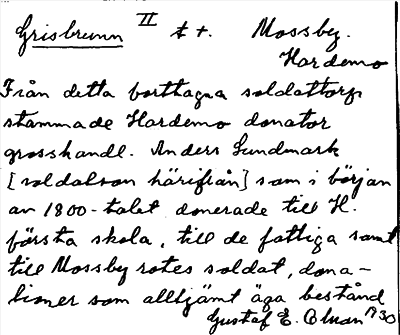 Grisbrunn II st t. Mossby.
Hardemo
Från detta borttagna soldattorp
stammade Hardemo donator
grosshandl. Anders Lundmark
[soldatson härifrån] som i början
av 1800-talet donerade till H.
första skola, till de fattiga samt
till Mossby rotes soldat, dona-
tioner som alltjämt äga bestånd
Gustaf E. 1930